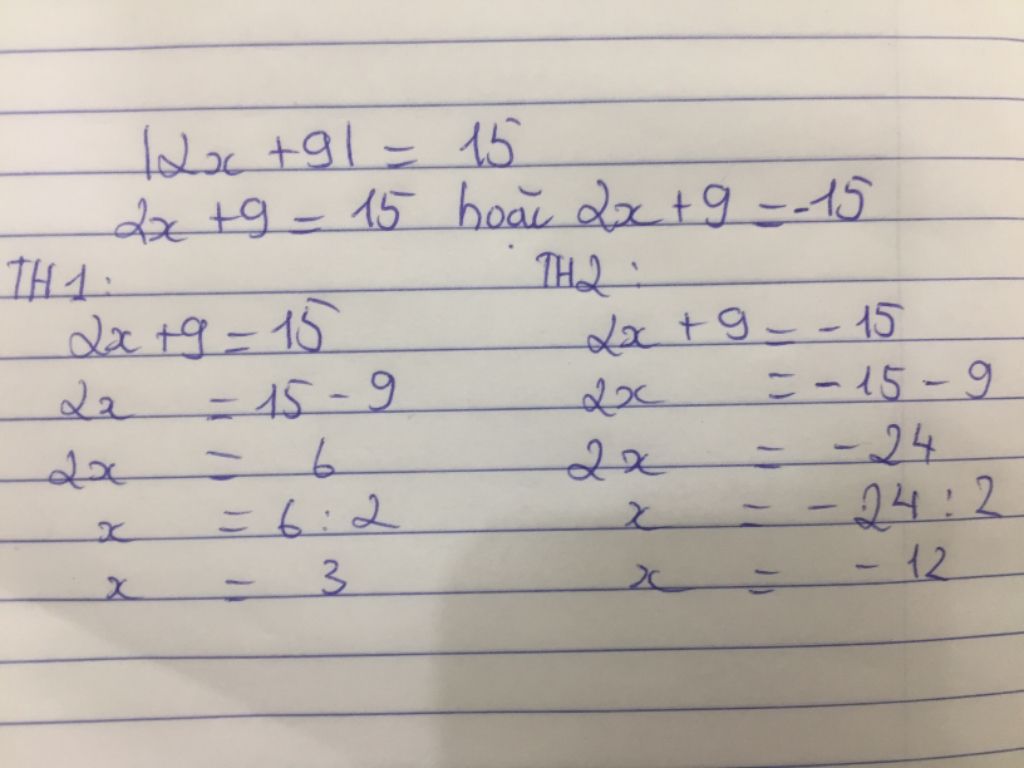 |2x + 9| = 15
2x + 9 = 15 hoặc 2x + 9 = -15
TH1: TH2:
2x + 9 = 15 2x + 9 = - 15
2x = 15 - 9 2x = - 15 - 9
2x = 6 2x = - 24
x = 6 : 2 x = - 24 : 2
x = 3 x = - 12